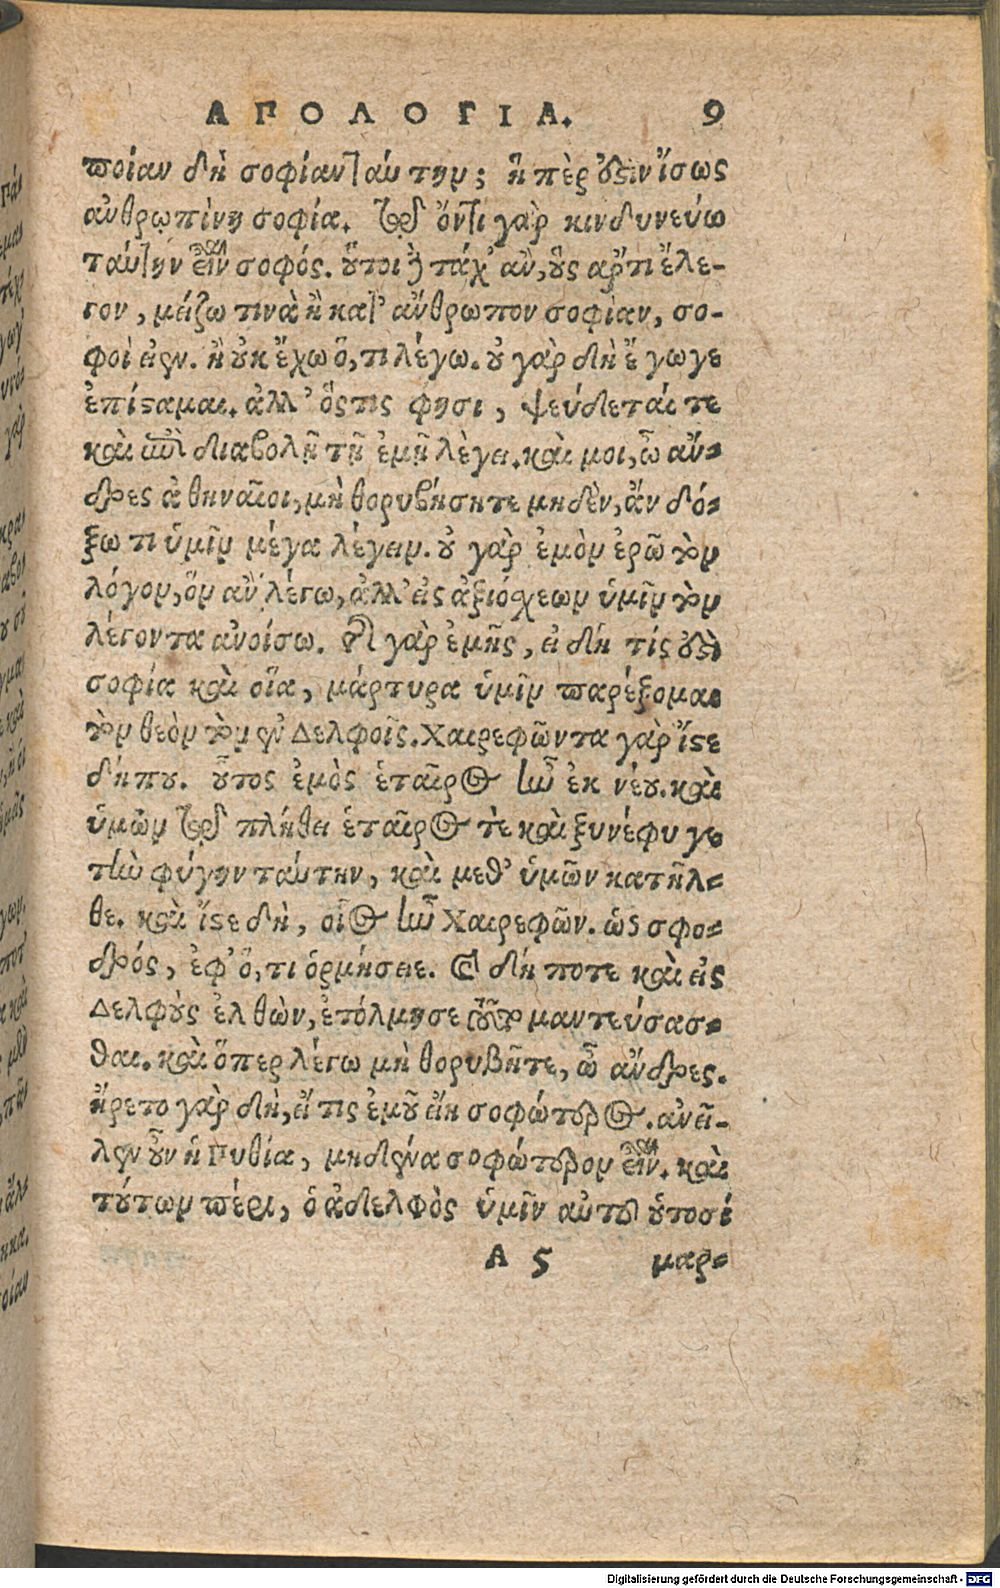 ΑΠΟΛΟΓΙΑ. 9
ποίαν δὴ σοφίαν ταύτην; ἥ πὲρ ὅϛιν ἴσως
ἀνθρωπίνη σοφία. τῷ ὄντι γὰρ κινδυνεύω
ταύτην εἶναι σοφός. οὗτοι δὲ τάχ' ἂν, οὓς ἄρτι ἔλε-
γον, μείζω τινὰ ἢ κατ' ἄνθρωπον σοφίαν, σο-
φοὶ εἶεν. ἢ οὐκ ἔχω ὅ, τι λέγω. οὐ γὰρ δὴ ἔγωγε
ἐπίϛαμαι. ἀλλ' ὅςτις φησι, ψεύδεταί τε
καὶ ἐπὶ διαβολῇ τῇ ἐμῇ λέγει. καὶ μοι, ὦ ἄν-
δρες ἀθηναῖοι, μὴ θορυβήσητε μηδὲν, ἂν δό-
ξω τι ὑμῖν μέγα λέγειν. οὐ γὰρ ἐμὸν ἐρῶ τὸν
λόγον, ὃν ἂν λέγω, ἀλλ' εἰς ἀξιόχρεων ὑμῖν τὸν
λέγοντα ἀνοίσω. τῆς γὰρ ἐμῆς, εἰ δή τίς ὅϛι
σοφία καὶ οἵα, μάρτυρα ὑμῖν παρέξομαι
τὸν θεὸν τὸν ἐν Δελφοῖς. Χαιρεφῶντα γὰρ ἴϛε
δήπου. οὗτος ἐμὸς ἑταῖρος ἦν ἐκ νέου. καὶ
ὑμῶν τῷ πλήθει ἑταῖρος τὲ καὶ ξυνέφυγε
τὴν φύγην ταύτην, καὶ μεθ' ὑμῶν κατῆλ-
θε. καὶ ἴϛε δὴ, οἷος ἦν Χαιρεφῶν. ὡς σφο-
δρός, ἐφ' ὅ, τι ὁρμήσειε. καὶ δή ποτε καὶ εἰς
Δελφοὺς ἐλθὼν, ἐτόλμησε τοῦτο μαντεύσασ-
θαι. καὶ ὅπερ λέγω μὴ θορυβῆτε, ὦ ἄνδρες.
ἤρετο γὰρ δὴ, εἴ τις ἐμοῦ εἴη σοφώτερος. ἀνεῖ-
λεν οὖν ἡ Πυθία, μηδένα σοφώτερον εἶναι. καὶ
τούτων πέρι, ὁ ἀδελφὸς ὑμῖν αὐτοῦ οὑτοσί
A 5 μαρ-
Digitalisierung gefördert durch die Deutsche Forschungsgemeinschaft - DFG